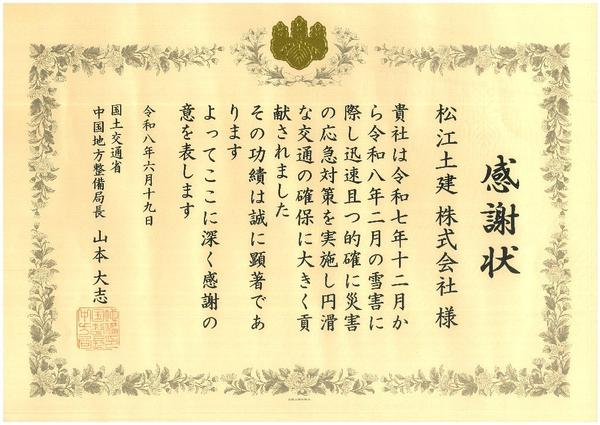 感謝状
松江土建 株式会社 様
貴社は令和七年十二月か
ら令和八年二月の雪害に
際し迅速且つ的確に災害
の応急対策を実施し円滑
な交通の確保に大きく貢
献されました
その功績は誠に顕著であ
ります
よってここに深く感謝の
意を表します
令和八年六月十九日
国土交通省
中国地方整備局長 山本 大志